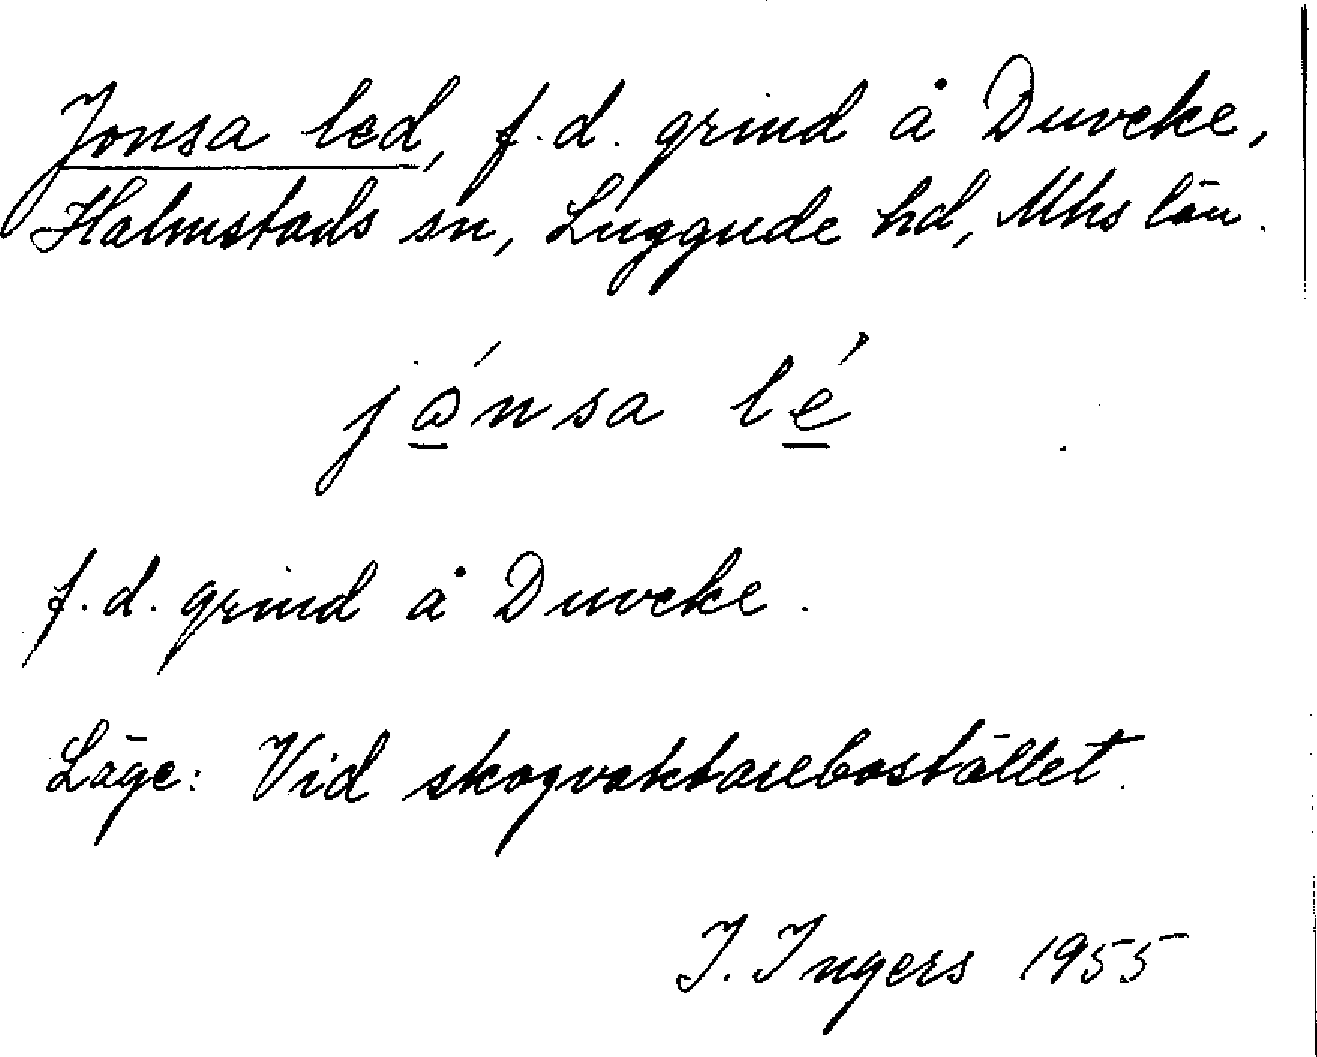 Jonsa led, f.d. grind å Duveke,
Halmstads sn, Luggude hd, Mhs län.
jọ́nsa lé
f.d. grind å Duveke.
Läge: Vid skogvaktarebostället.
I. Ingers 1955